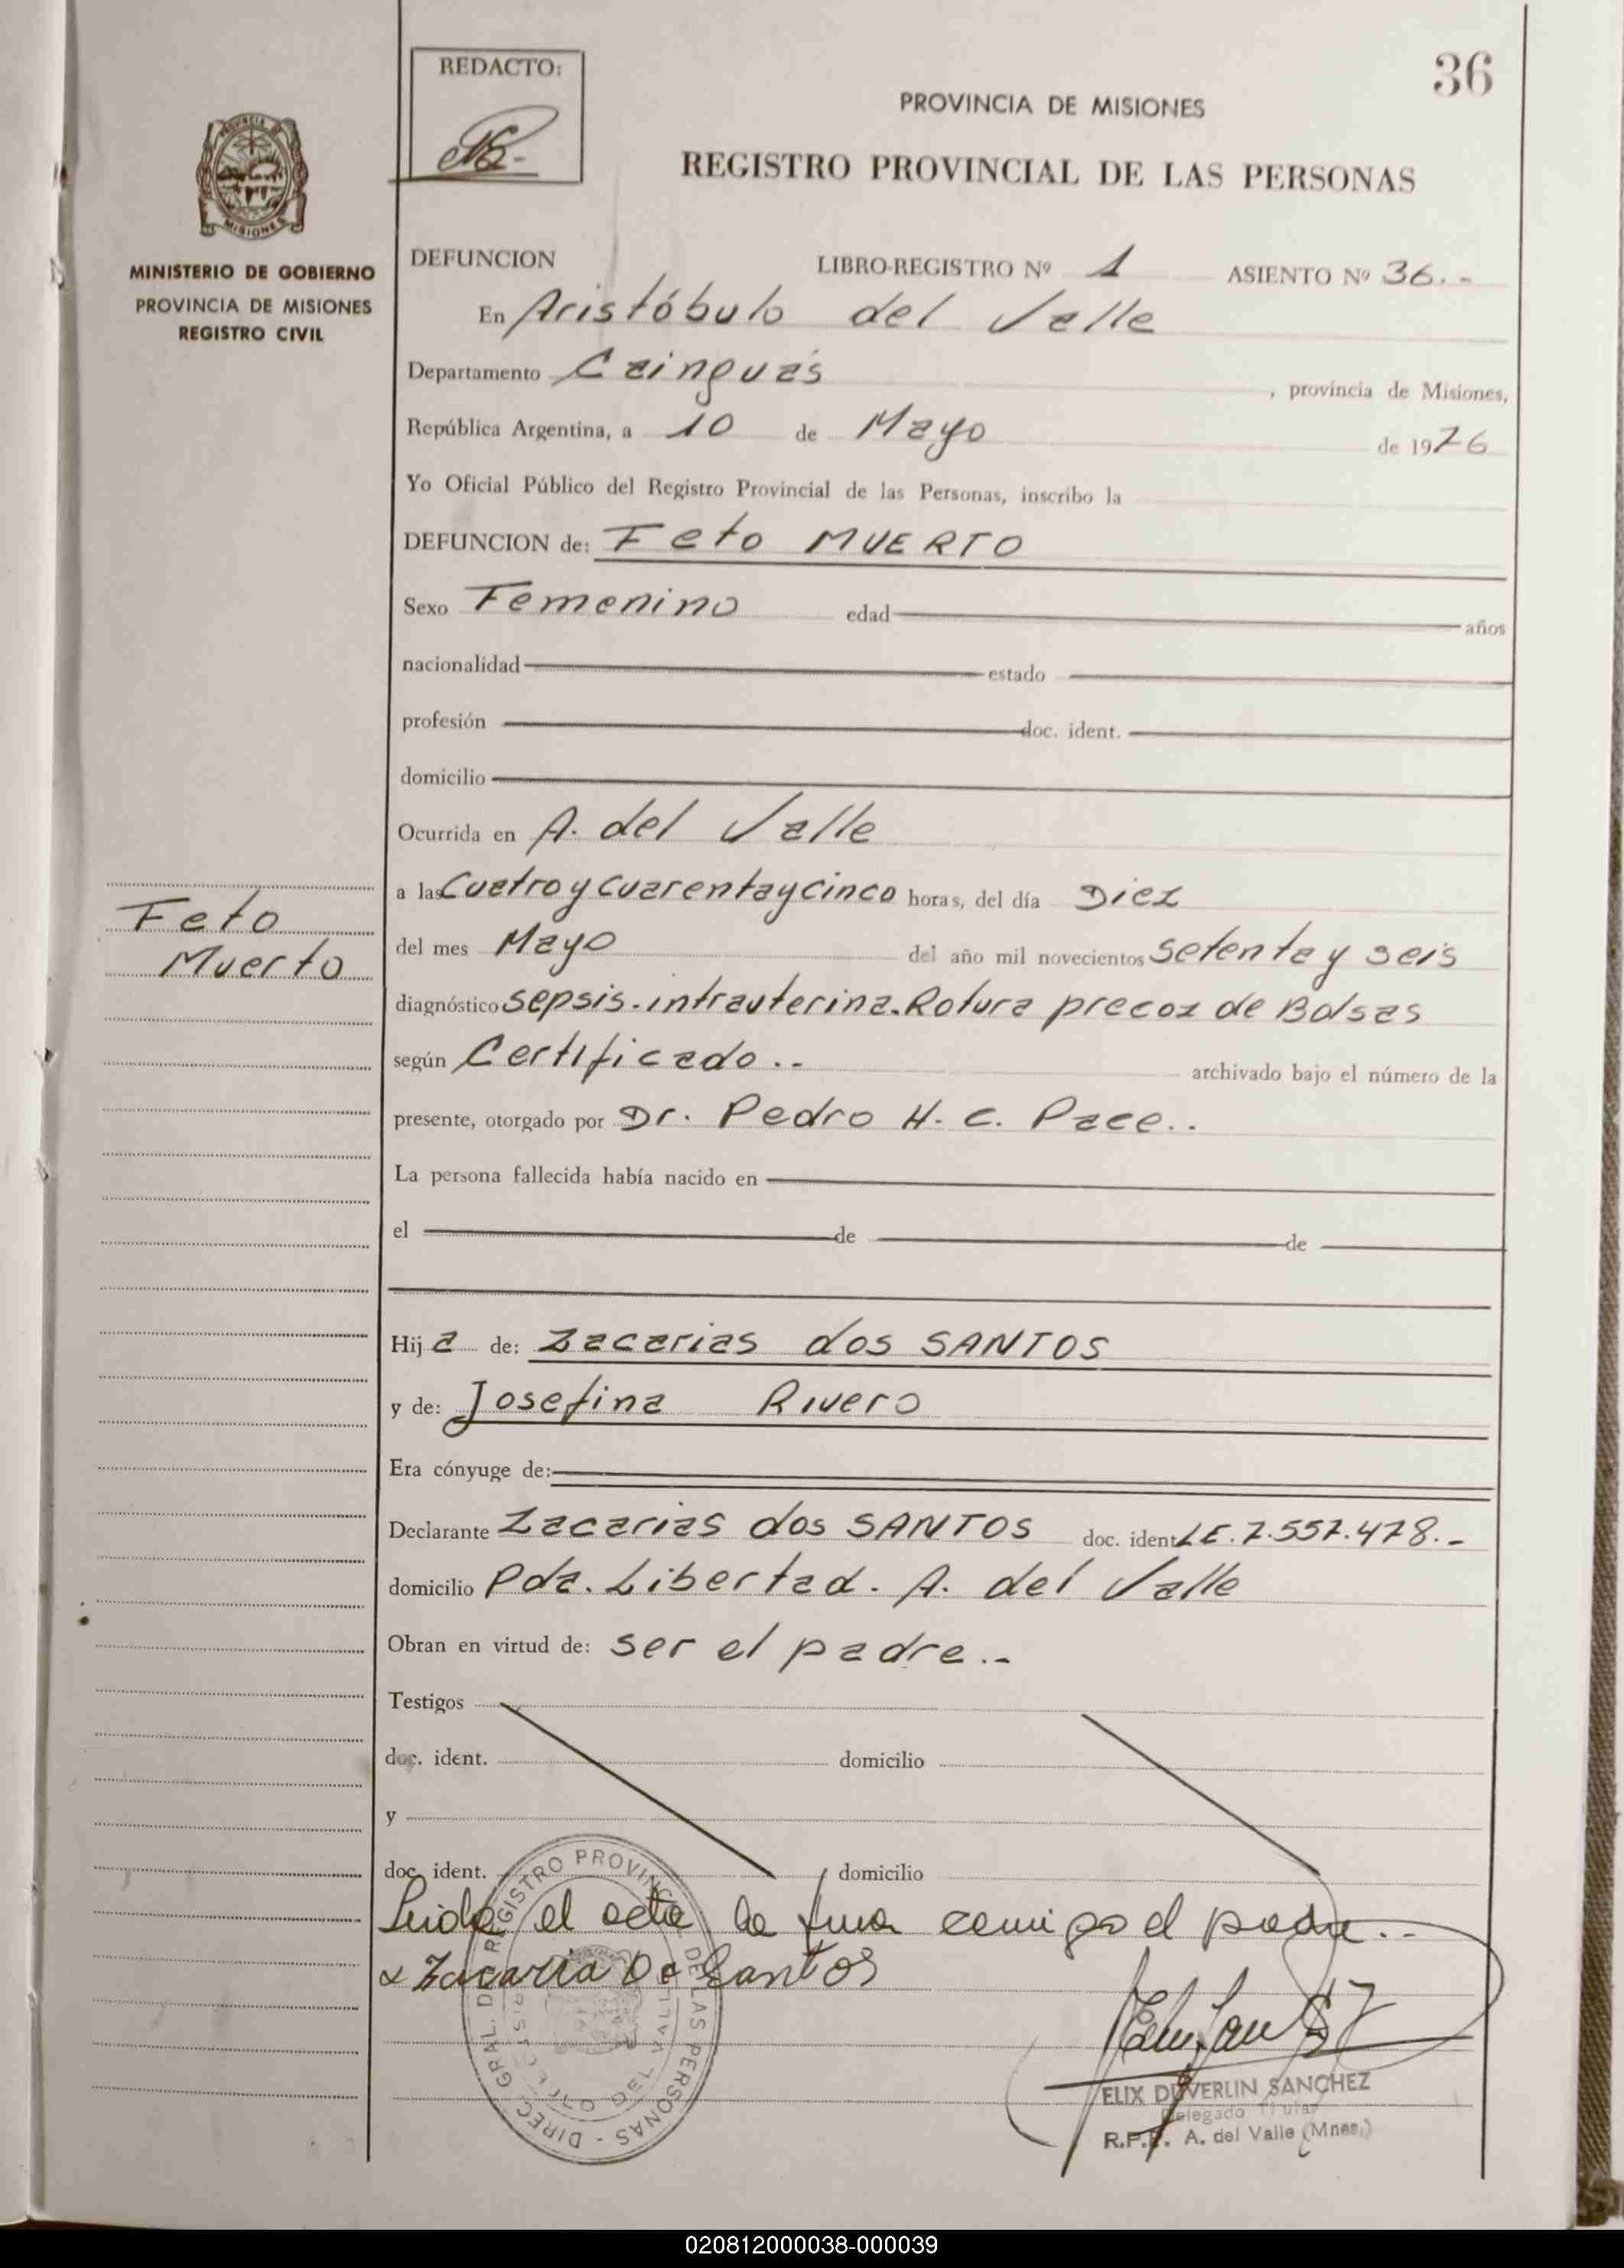 REDACTO:
36
PROVINCIA DE MISIONES
REGISTRO PROVINCIAL DE LAS PERSONAS
PROVINCIA DE
MISIONES
MINISTERIO DE GOBIERNO
PROVINCIA DE MISIONES
REGISTRO CIVIL
DEFUNCION LIBRO-REGISTRO Nº 1 ASIENTO Nº 36.-
En Aristóbulo del Valle
Departamento Cainguás, provincia de Misiones,
República Argentina, a 10 de Mayo de 1976
Yo Oficial Público del Registro Provincial de las Personas, inscribo la
DEFUNCION de: Feto MUERTO
Sexo Femenino edad años
nacionalidad estado
profesión doc. ident.
domicilio
Ocurrida en A. del Valle
a las Cuatro y cuarenta y cinco horas, del día Diez
del mes Mayo del año mil novecientos setenta y seis
Feto
Muerto
diagnóstico sepsis-intrauterina. Rotura precoz de Bolsas
según Certificado.. archivado bajo el número de la
presente, otorgado por Dr. Pedro H. C. Pace..
La persona fallecida había nacido en
el de de
Hija de: Zacarias dos SANTOS
y de: Josefina Rivero
Era cónyuge de:
Declarante Zacarias dos SANTOS doc. ident LE. 7.557.478.-
domicilio Pda. Libertad. A. del Valle
Obran en virtud de: ser el padre..
Testigos
doc. ident. domicilio
y
doc. ident. domicilio
Leida el acta la firma comigo el padre..
Zacaria Do Santos
DIREC. GRAL. DE REGISTRO PROVINCIAL DE LAS PERSONAS
DEL VALLE
ELIX DUVERLIN SANCHEZ
Delegado Titular
R.P.P. A. del Valle (Mnes.)
020812000038-000039